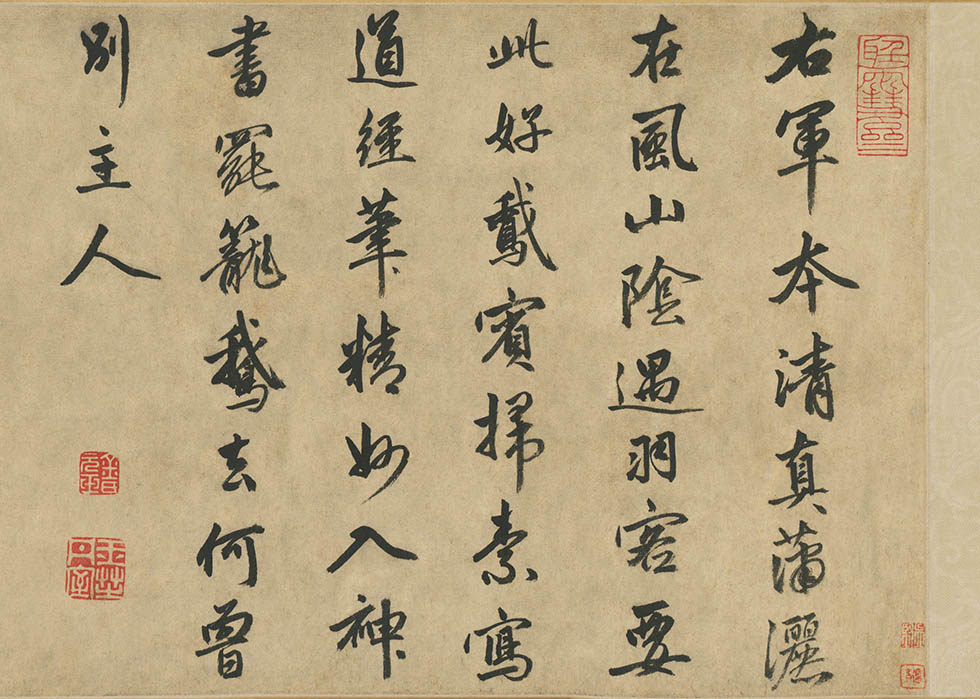 右軍本清真瀟灑
在風山陰遇羽客要
此好鵞賓掃素寫
道經筆精妙入神
書罷籠鵝去何曾
別主人